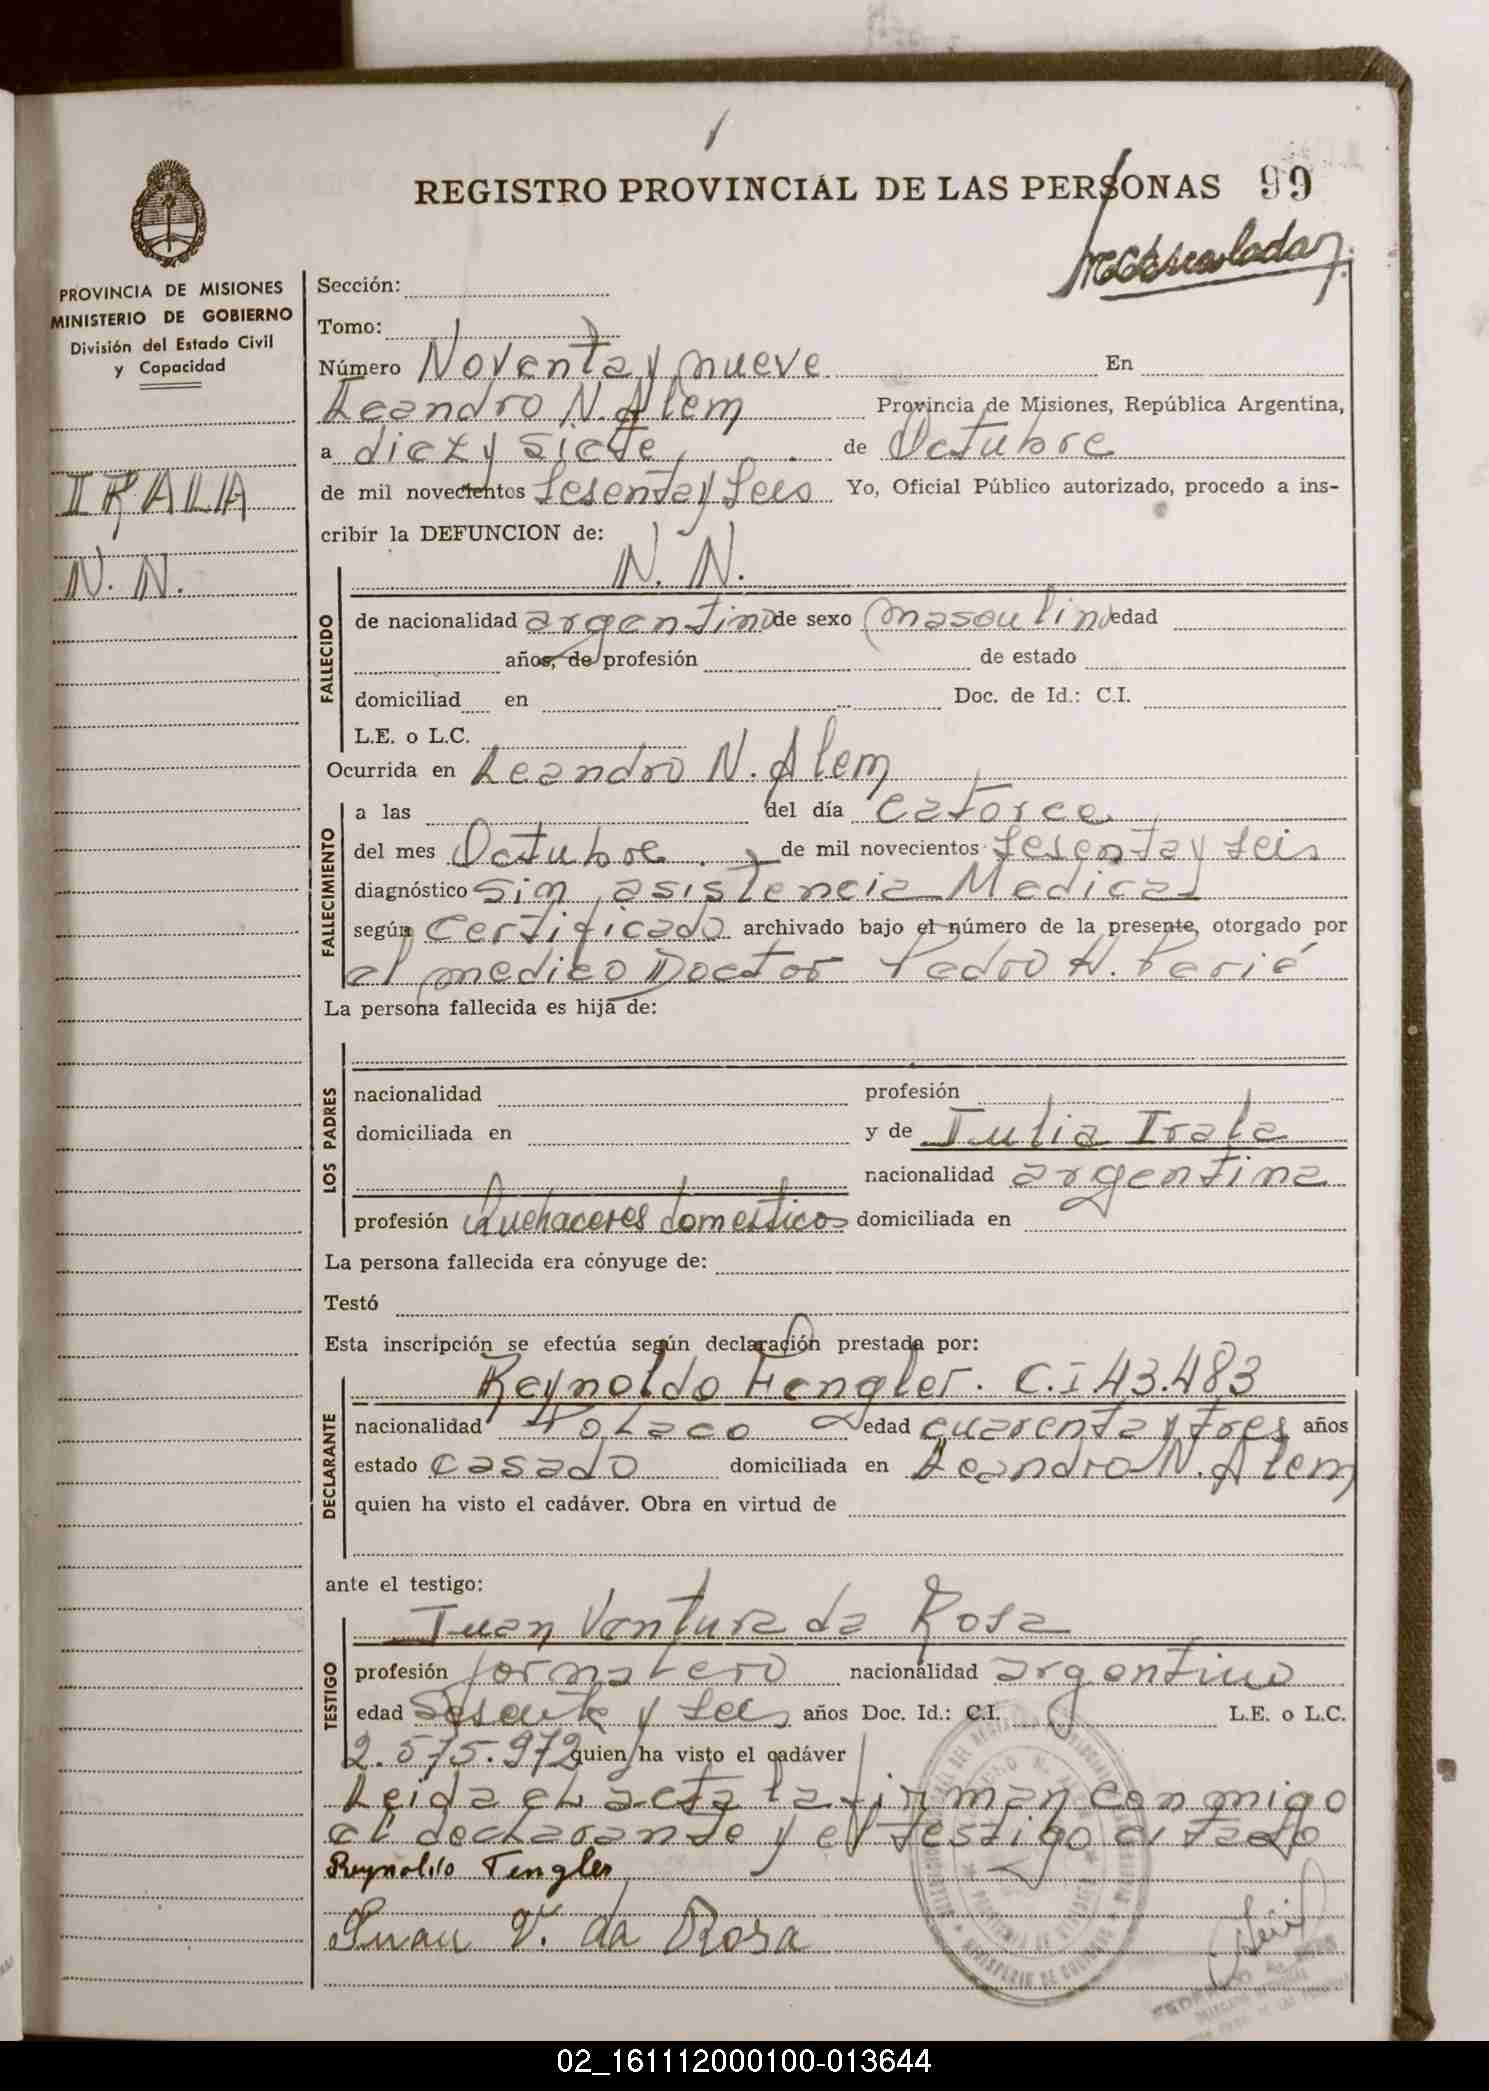 REGISTRO PROVINCIAL DE LAS PERSONAS 99
PROVINCIA DE MISIONES
MINISTERIO DE GOBIERNO
División del Estado Civil
y Capacidad
IRALA
N. N.
Sección:
Tomo:
Número Noventa y nueve En
Leandro N. Alem Provincia de Misiones, República Argentina,
a diez y siete de Octubre
de mil novecientos sesenta y seis Yo, Oficial Público autorizado, procedo a ins-
cribir la DEFUNCION de:
N. N.
FALLECIDO
de nacionalidad argentino de sexo masculino edad
años, de profesión de estado
domiciliad en Doc. de Id.: C.I.
L.E. o L.C.
Ocurrida en Leandro N. Alem
FALLECIMIENTO
a las del día catorce
del mes Octubre de mil novecientos sesenta y seis
diagnóstico sin asistencia Medica
según certificado archivado bajo el número de la presente, otorgado por
el medico Doctor Pedro H. Perié
La persona fallecida es hija de:
LOS PADRES
nacionalidad profesión
domiciliada en y de Julia Irala
nacionalidad argentina
profesión Quehaceres domesticos domiciliada en
La persona fallecida era cónyuge de:
Testó
Esta inscripción se efectúa según declaración prestada por:
Reynoldo Fengler. C.I 43.483
DECLARANTE
nacionalidad Polaco edad cuarenta y tres años
estado casado domiciliada en Leandro N. Alem
quien ha visto el cadáver. Obra en virtud de
ante el testigo:
Juan Ventura da Rosa
TESTIGO
profesión jornalero nacionalidad argentino
edad Sesenta y seis años Doc. Id.: C.I. L.E. o L.C.
2.575.972 quien ha visto el cadáver
Leida el acta la firman conmigo
el declarante y el testigo citado
Reynoldo Fengler
Juan V. da Rosa
02_161112000100-013644